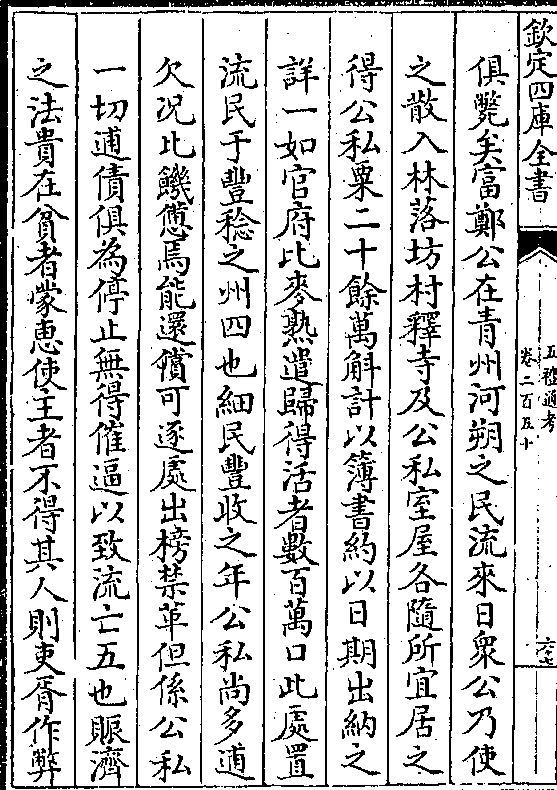 欽定四庫全書
五禮通考
卷二百五十
俱斃矣富鄭公在青州河朔之民流來日衆公乃使
之散入林落坊村釋寺及公私室屋各隨所宜居之
得公私粟二十餘萬斛計以簿書約以日期出納之
詳一如官府比麥熟遣歸得活者數百萬口此處置
流民于豐稔之州四也細民豐收之年公私尚多逋
欠况比饑憊焉能還償可逐處出榜禁革但係公私
一切逋債俱為停止無得催逼以致流亡五也賑濟
之法貴在貧者蒙惠使主者不得其人則吏胥作弊